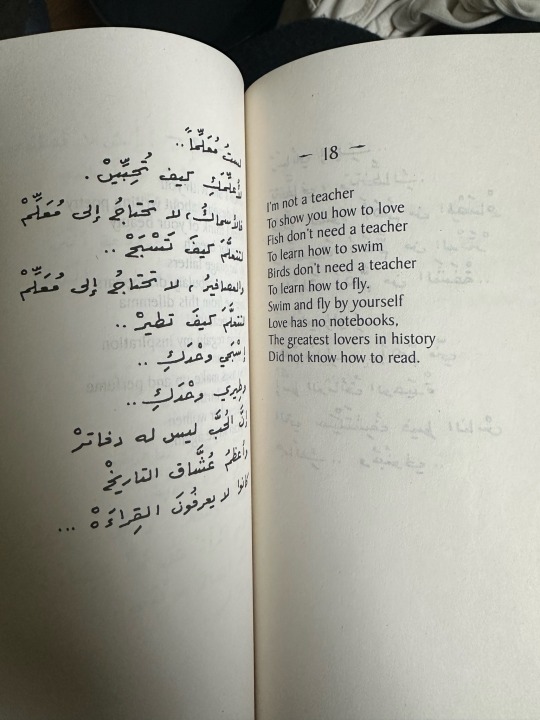 لستُ مُعَلِّماً..
لأُعَلِّمَكِ كيفَ تُحِبِّيْنْ.
فالأسماكُ، لا تحتاجُ إلى مُعَلِّمْ
لتتعلَّمَ كيفَ تَسْبَحْ..
والعصافيرُ، لا تحتاجُ إلى مُعَلِّمْ
لتتعلَّمَ كيفَ تطيرْ..
إسْبَحي وحْدَكِ..
وطِيري وحْدَكِ..
إنَّ الحُبَّ ليس له دفاترْ
وأعظمُ عُشَّاقِ التاريخْ
كانوا لا يعرفُونَ القِراءَهْ...
– 18 –
I'm not a teacher
To show you how to love
Fish don't need a teacher
To learn how to swim
Birds don't need a teacher
To learn how to fly.
Swim and fly by yourself
Love has no notebooks,
The greatest lovers in history
Did not know how to read.